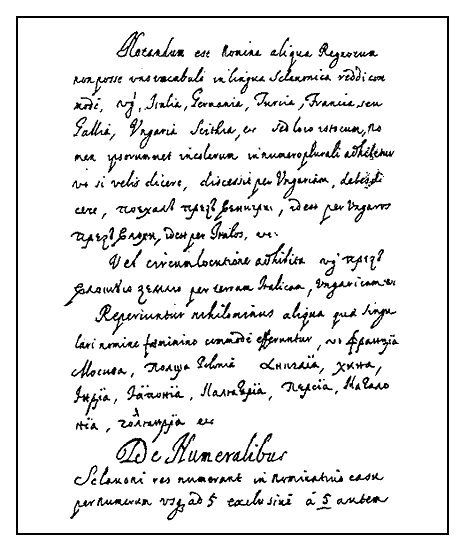 Notandum est Nomina aliqua Regnorum
non posse uno vocabulo in lingua Sclavonica reddi com
modè, vg, Italia, Germania, Turcia, Francia, seu
Gallia, Ungaria Scithia, etc sed loco istorum, no
men ipsorummet incolarum in numero plurali adhibetur
ut si velis dicere, discessit per Ungariam, debes di
cere, поехалъ презъ Венгри, id est per Ungaros
презъ Влахи, id est per Italos, etc.
Vel circumlocutione adhibita vg презъ
землю per terram Italicam, Ungaricam etc
Reperiuntur nihilominus aliqua quae singu
lari nomine faeminino commodè efferuntur, ut Францїа
Москва, Полща Polonia Англїа, хина,
Индїа, Іапонїа, Персїа, Катало
нїа, голландїа etc
De Numeralibus
Sclavoni res numerant in nominativo casu
per numerum usq ad 5 exclusivè à 5 autem